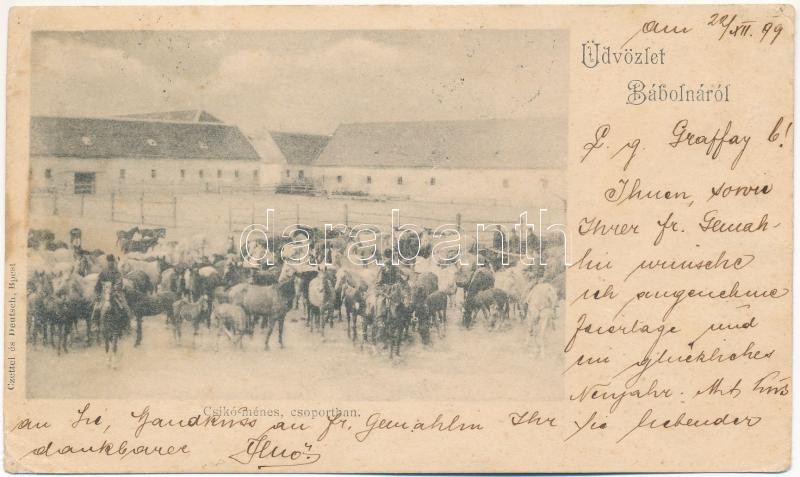 am 22/XII. 99
Üdvözlet
Bábolnáról
L. g. Graffay b!
Ihnen, sowie
Ihrer fr. Gemah-
lin wünsche
ich angenehme
Feiertage und
ein glückliches
Neujahr. Mit
Sie liebender
darabanth
Czettel és Deutsch, Bpest
Csikó-ménes, csoportban.
an Sie, Handkuss an fr. Gemahlin Ihr
dankbarer